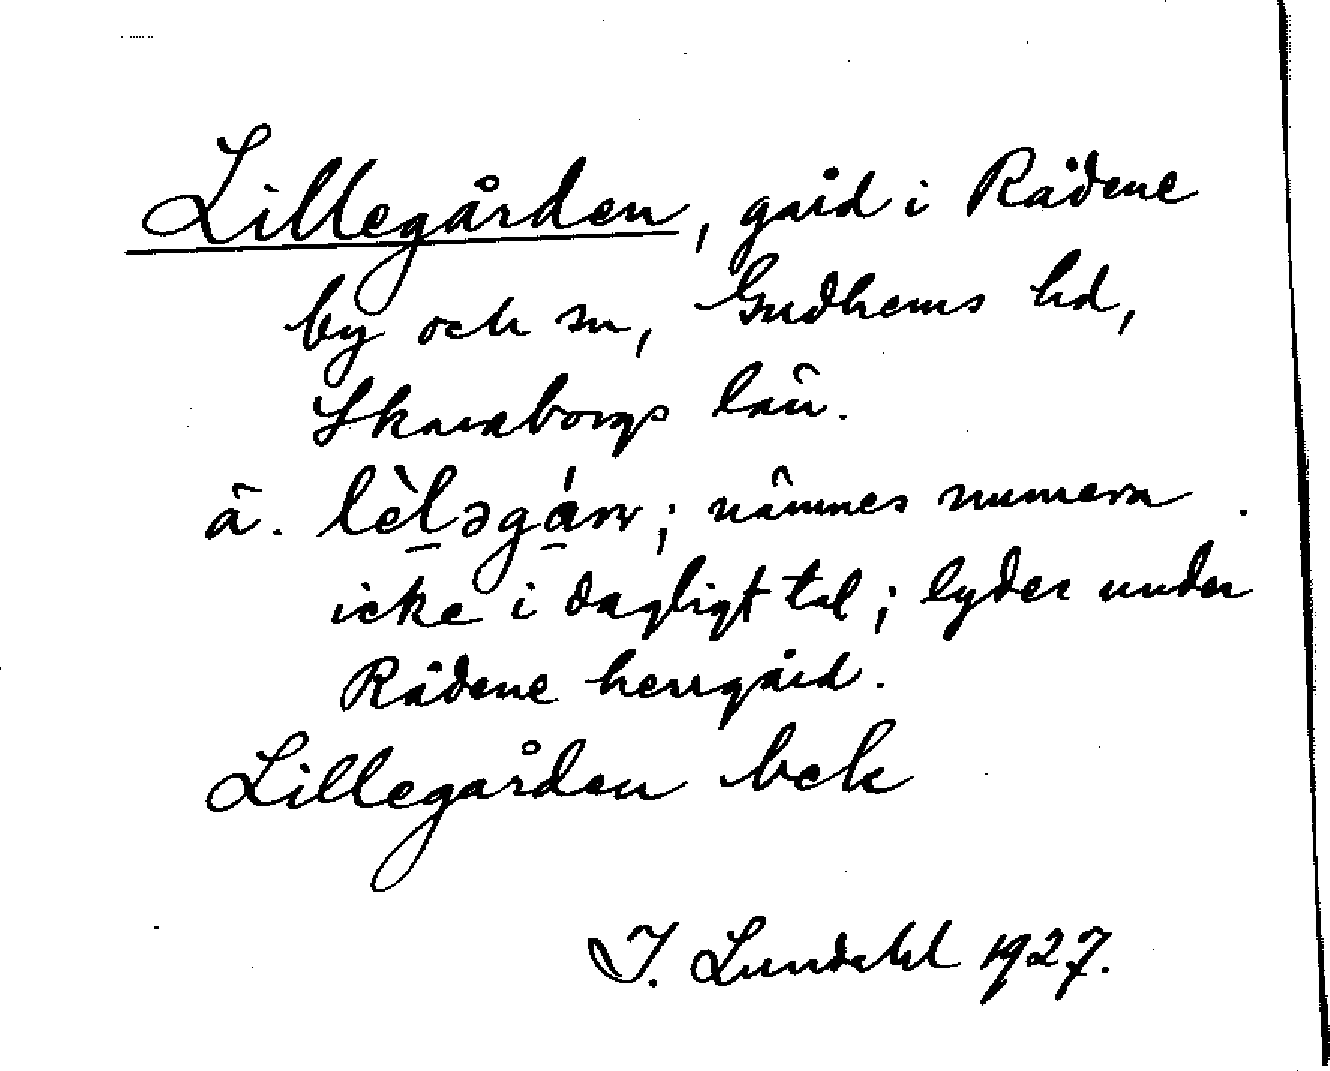 Lillegården, gård i Rådene
by och sn, Gudhems hd,
Skaraborgs län.
ä. lèl̠əgá̠rn; nämnes numera
icke i dagligt tal; lyder under
Rådene herrgård.
Lillegården bek
I. Lundahl 1927.